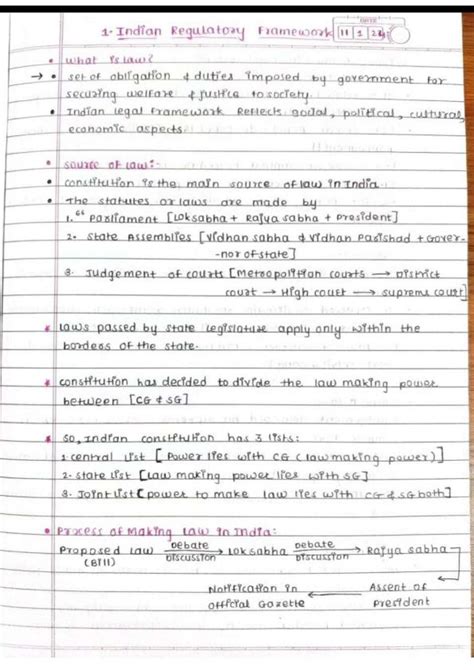 1. Indian Regulatory Framework
DATE
11 1 24
• What is law?
→ • set of obligation & duties imposed by government for
securing welfare & justice to society.
• Indian legal framework Reflects social, political, cultural,
economic aspects.
• source of law:-
• constitution is the main source of law in India
• The statutes or laws are made by
1. Parliament [Loksabha + Rajya sabha + President]
2. State Assemblies [Vidhan sabha & Vidhan Parishad + Gover-
-nor of state]
3. Judgement of courts [Metropolition courts → District
court → High court → supreme court]
* laws passed by state legislature apply only within the
borders of the state.
* constitution has decided to divide the law making power
between [CG & SG]
* So, Indian constitution has 3 lists:
1. central list [Power lies with CG (law making power)]
2. state list [Law making power lies with SG]
3. Joint list [power to make law lies with CG & SG both]
• Process of Making Law in India:
Proposed law Debate Discussion → Loksabha Debate Discussion → Rajya sabha
(Bill)
Notification in ← Assent of
official Gazette President